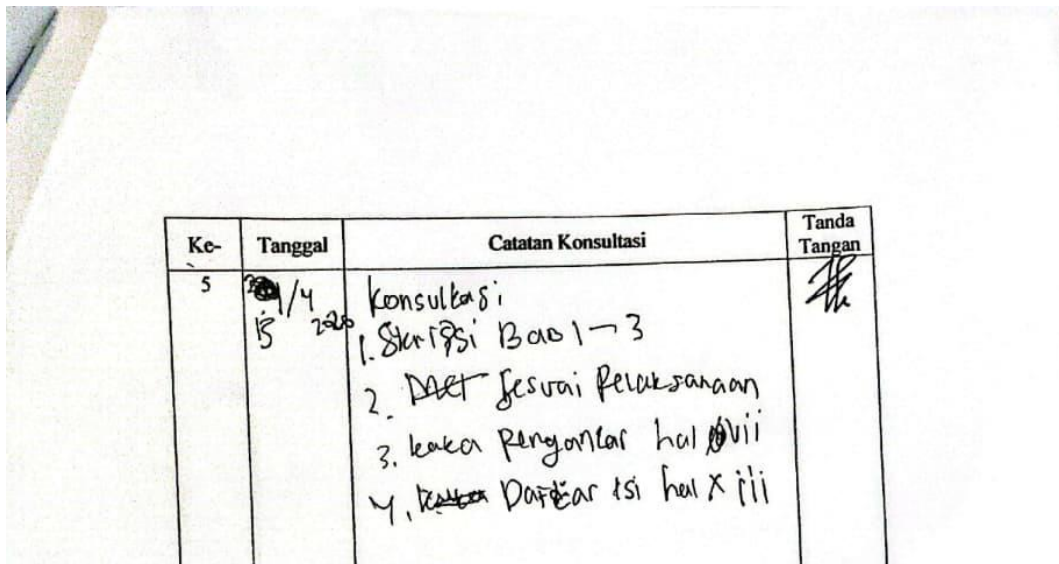 Ke- Tanggal Catatan Konsultasi Tanda Tangan
5 /4 Konsultasi
15 2020 1. Skripsi Bab 1-3
2. Sesuai Pelaksanaan
3. kata Pengantar hal vii
4. Daftar isi hal xiii